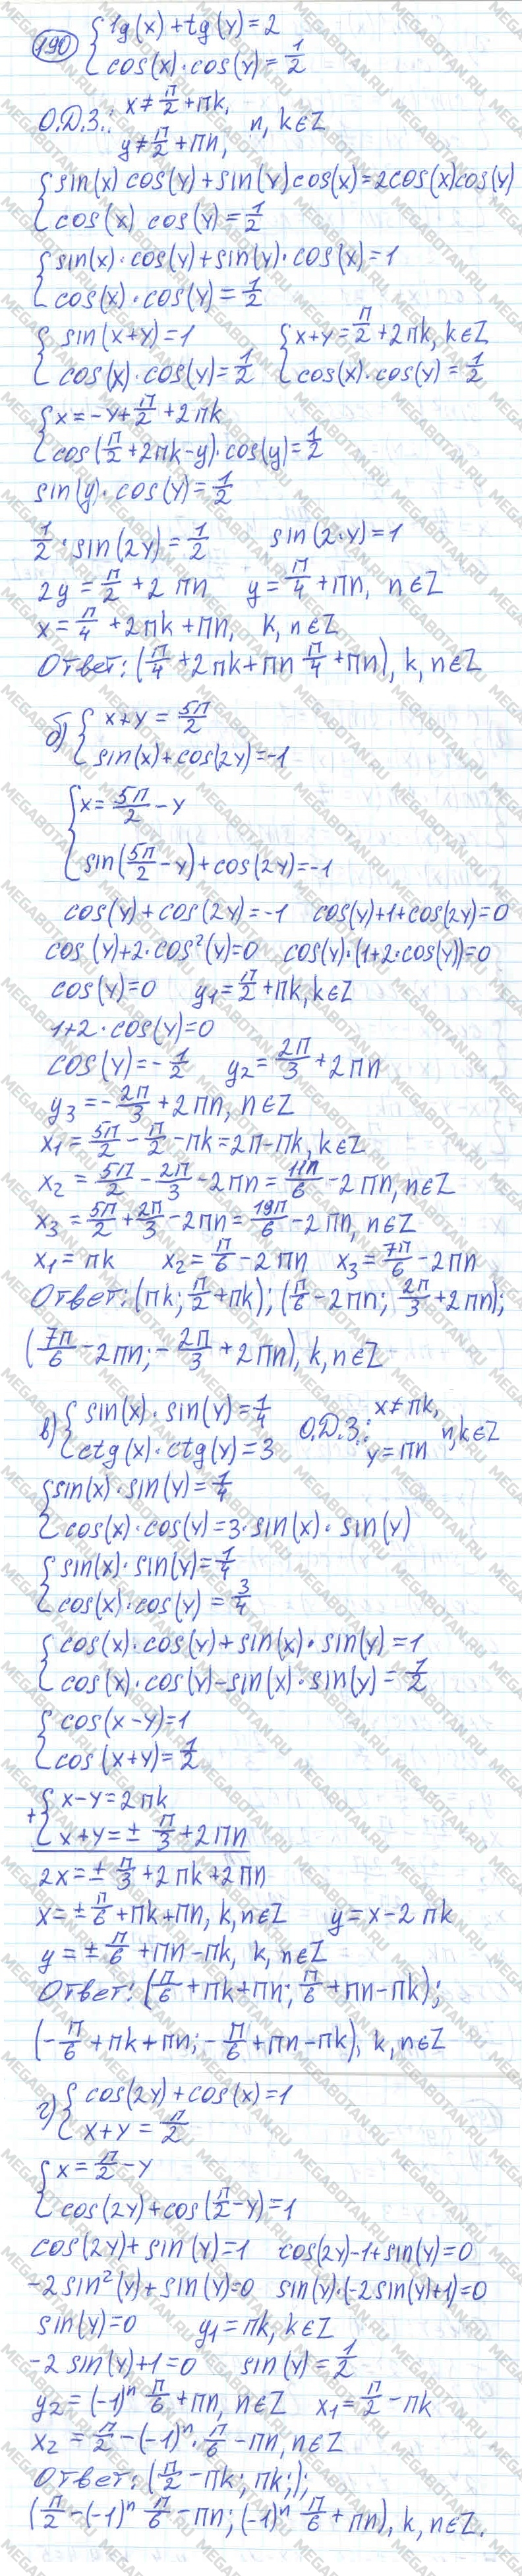 190 { tg(x)+tg(y)=2
cos(x)·cos(y)=1/2
О.Д.З.: x≠π/2+πk,
y≠π/2+πn, n, k∈Z
{ sin(x)cos(y)+sin(y)cos(x)=2cos(x)cos(y)
cos(x) cos(y)=1/2
{ sin(x)·cos(y)+sin(y)·cos(x)=1
cos(x)·cos(y)=1/2
{ sin(x+y)=1 { x+y=π/2+2πk, k∈Z
cos(x)·cos(y)=1/2 cos(x)·cos(y)=1/2
{ x=-y+π/2+2πk
cos(π/2+2πk-y)·cos(y)=1/2
sin(y)·cos(y)=1/2
1/2·sin(2y)=1/2 sin(2·y)=1
2y=π/2+2πn y=π/4+πn, n∈Z
x=π/4+2πk+πn, k, n∈Z
Ответ: (π/4+2πk+πn π/4+πn), k, n∈Z
б) { x+y=5π/2
sin(x)+cos(2y)=-1
{ x=5π/2-y
sin(5π/2-y)+cos(2y)=-1
cos(y)+cos(2y)=-1 cos(y)+1+cos(2y)=0
cos(y)+2·cos²(y)=0 cos(y)·(1+2·cos(y))=0
cos(y)=0 y₁=π/2+πk, k∈Z
1+2·cos(y)=0
cos(y)=-1/2 y₂=2π/3+2πn
y₃=-2π/3+2πn, n∈Z
x₁=5π/2-π/2-πk=2π-πk, k∈Z
x₂=5π/2-2π/3-2πn=11π/6-2πn, n∈Z
x₃=5π/2+2π/3-2πn=19π/6-2πn, n∈Z
x₁=πk x₂=π/6-2πn x₃=7π/6-2πn
Ответ: (πk; π/2+πk); (π/6-2πn; 2π/3+2πn);
(7π/6-2πn; -2π/3+2πn), k, n∈Z
в) { sin(x)·sin(y)=1/4 О.Д.З.: x≠πk,
ctg(x)·ctg(y)=3 y=πn n,k∈Z
{ sin(x)·sin(y)=1/4
cos(x)·cos(y)=3·sin(x)·sin(y)
{ sin(x)·sin(y)=1/4
cos(x)·cos(y)=3/4
{ cos(x)·cos(y)+sin(x)·sin(y)=1
cos(x)·cos(y)-sin(x)·sin(y)=1/2
{ cos(x-y)=1
cos(x+y)=1/2
+{ x-y=2πk
x+y=±π/3+2πn
2x=±π/3+2πk+2πn
x=±π/6+πk+πn, k,n∈Z y=x-2πk
y=±π/6+πn-πk, k, n∈Z
Ответ: (π/6+πk+πn; π/6+πn-πk);
(-π/6+πk+πn; -π/6+πn-πk), k,n∈Z
г) { cos(2y)+cos(x)=1
x+y=π/2
{ x=π/2-y
cos(2y)+cos(π/2-y)=1
cos(2y)+sin(y)=1 cos(2y)-1+sin(y)=0
-2sin²(y)+sin(y)=0 sin(y)·(-2sin(y)+1)=0
sin(y)=0 y₁=πk, k∈Z
-2sin(y)+1=0 sin(y)=1/2
y₂=(-1)ⁿ π/6+πn, n∈Z x₁=π/2-πk
x₂=π/2-(-1)ⁿ·π/6-πn, n∈Z
Ответ: (π/2-πk; πk;);
(π/2-(-1)ⁿ π/6-πn; (-1)ⁿ π/6+πn), k, n∈Z.
MEGABOTAN.RU